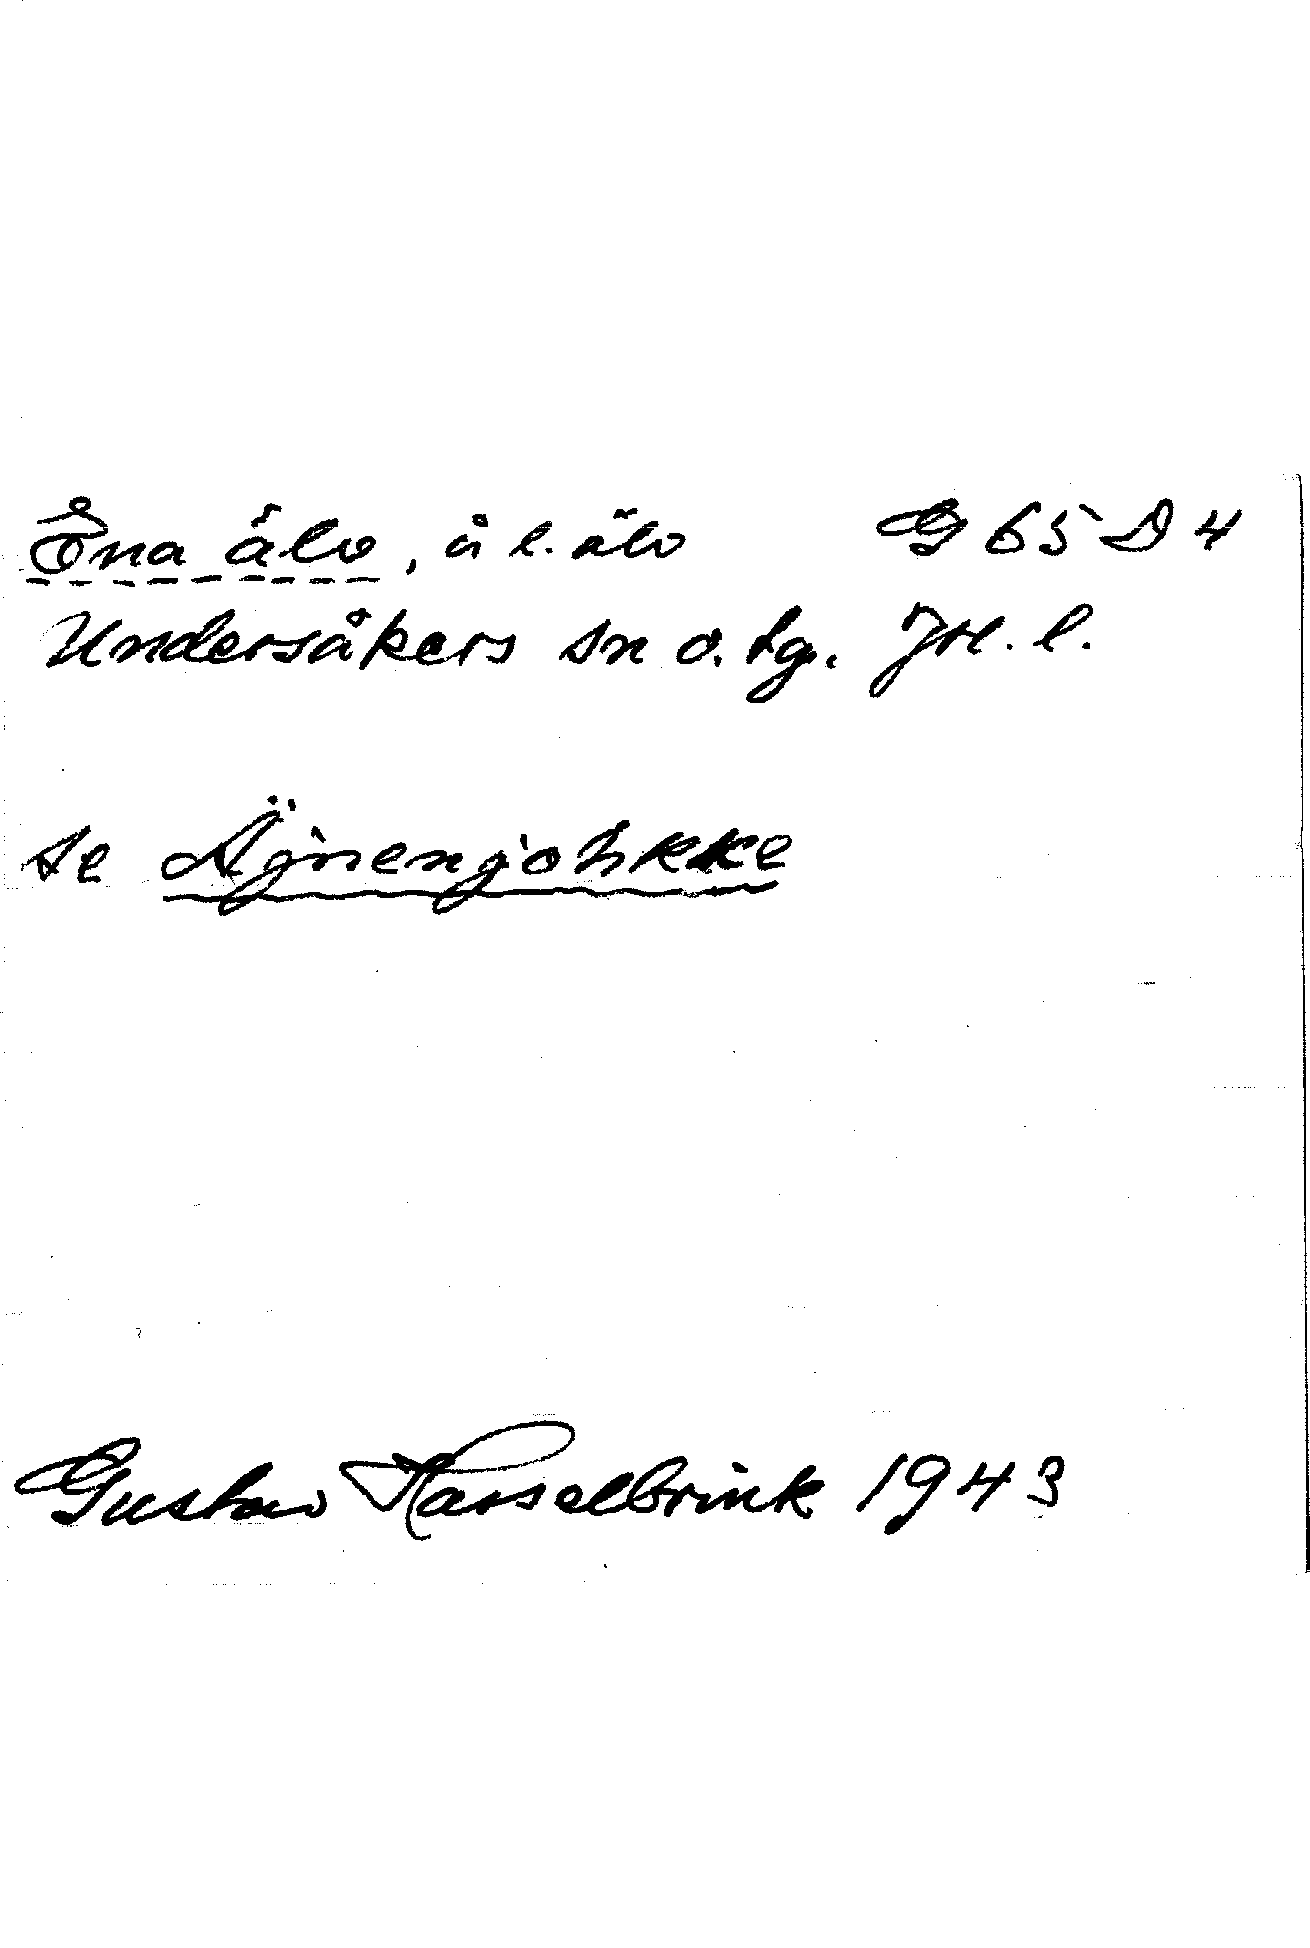 Ena älv, å l. älv G 65 D 4
Undersåkers sn o. tg. Jtl. l.
se Äjnenjohkke
Gustav Hasselbrink 1943